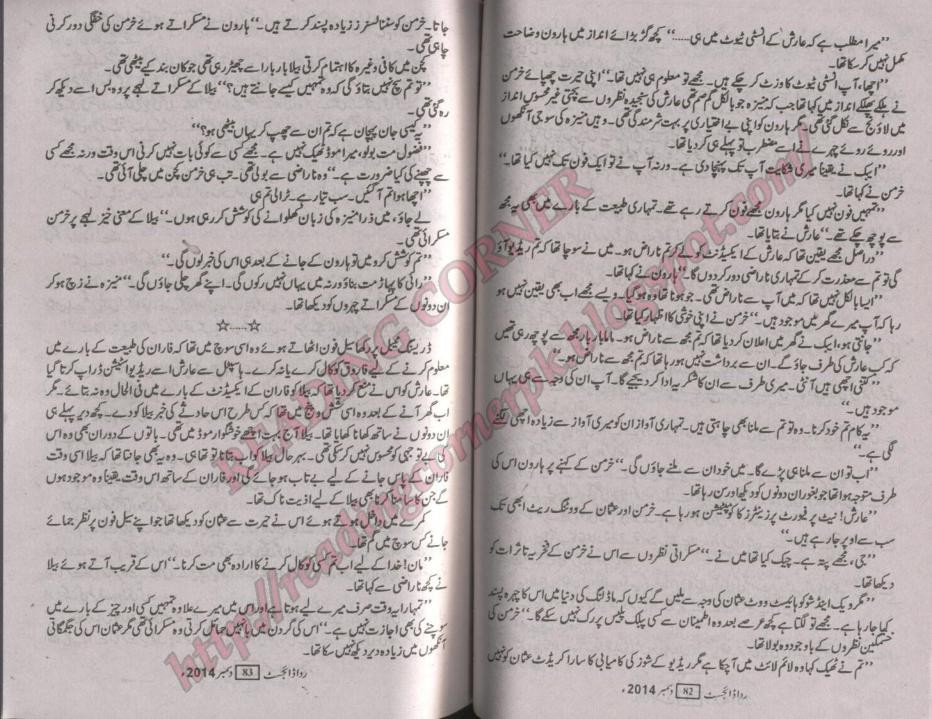 ”میرا مطلب ہے کہ عارش کے انسٹی ٹیوٹ میں ہی......“ کچھ گڑبڑائے انداز میں ہارون وضاحت
مکمل نہیں کر سکا تھا۔
”اچھا، آپ انسٹی ٹیوٹ کا وزٹ کر چکے ہیں۔ مجھے تو معلوم ہی نہیں تھا۔“ اپنی حیرت چھپائے خرمن
نے ہلکے پھلکے انداز میں کہا تھا جب کہ منیزہ جو بالکل گم صم تھی عارش کی سنجیدہ نظروں سے بچتی غیر محسوس انداز
میں لاؤنج سے نکل گئی تھی۔ مگر ہارون کو اپنی بے اختیاری پر بہت شرمندگی تھی۔ وہیں منیزہ کی سوجی آنکھوں
اور روئے روئے چہرے نے اسے مضطرب تو پہلے ہی کر دیا تھا۔
”ایک نے یقیناً میری شکایت آپ تک پہنچا دی ہے۔ ورنہ آپ نے تو ایک فون تک نہیں کیا تھا۔“
خرمن نے کہا تھا۔
”تمہیں فون نہیں کیا مگر ہارون مجھے فون کرتے رہے تھے۔ تمہاری طبیعت کے بارے میں بھی یہ مجھ
سے پوچھ چکے تھے۔“ عارش نے بتایا تھا۔
”دراصل مجھے یقین تھا کہ عارش کے ایکسیڈنٹ کو لے کر تم ناراض ہو۔ میں نے سوچا تھا کہ تم ریڈیو آؤ
گی تو تم سے معذرت کر کے تمہاری ناراضی دور کر دوں گا۔“ ہارون نے کہا تھا۔
”ایسا بالکل نہیں تھا کہ میں آپ سے ناراض تھی۔ جو ہونا تھا وہ ہو گیا۔ ویسے مجھے اب بھی یقین نہیں ہو
رہا کہ آپ میرے گھر میں موجود ہیں۔“ خرمن نے اپنی خوشی کا اظہار کیا تھا۔
”جانتی ہو، ایک نے گھر میں اعلان کر دیا تھا کہ تم مجھ سے ناراض ہو۔ ماما بار بار مجھ سے پوچھ رہی تھیں
کہ کب عارش کی طرف جاؤ گے۔ ان سے برداشت نہیں ہو رہا تھا کہ تم مجھ سے ناراض ہو۔“
”کتنی اچھی ہیں آنٹی۔ میری طرف سے ان کا شکریہ ادا کر دیجیے گا۔ آپ ان کی وجہ سے ہی یہاں
موجود ہیں۔“
”یہ کام تم خود کرنا۔ وہ تو تم سے ملنا بھی چاہتی ہیں۔ تمہاری آواز ان کو میری آواز سے زیادہ اچھی لگنے
لگی ہے۔“
”اب تو ان سے ملنا ہی پڑے گا۔ میں خود ان سے ملنے جاؤں گی۔“ خرمن کے کہنے پر ہارون اس کی
طرف متوجہ ہوا تھا جو بغور ان دونوں کو دیکھ اور سن رہا تھا۔
”عارش! نیٹ پر فیورٹ پریزینٹرز کا کمپٹیشن ہو رہا ہے۔ خرمن اور عثمان کے ووٹنگ ریٹ ابھی تک
سب سے اوپر جا رہے ہیں۔“
”جی، مجھے پتہ ہے۔ چیک کیا تھا میں نے۔“ مسکراتی نظروں سے اس نے خرمن کے فخریہ تاثرات کو
دیکھا تھا۔
”مگر ویک اینڈ شو کو ہائیسٹ ووٹ عثمان کی وجہ سے ملیں گے کیوں کہ ماڈلنگ کی دنیا میں اس کا چہرہ پسند
کیا جا رہا ہے۔ مجھے تو لگتا ہے کچھ عرصے بعد وہ اطمینان سے کسی پبلک پلیس پر رک نہیں سکے گا۔“ خرمن کی
خشمگین نظروں کے باوجود وہ بولا تھا۔
”تم نے ٹھیک کہا وہ لائم لائٹ میں آ چکا ہے مگر ریڈیو کے شوز کی کامیابی کا سارا کریڈٹ عثمان کو نہیں
رداڈائجسٹ 82 دسمبر 2014ء
جاتا۔ خرمن کو سننا لسنرز زیادہ پسند کرتے ہیں۔“ ہارون نے مسکراتے ہوئے خرمن کی خفگی دور کرنی
چاہی تھی۔
کچن میں کافی وغیرہ کا اہتمام کرتی بیلا بار بار اسے چھیڑ رہی تھی جو کان بند کیے بیٹھی تھی۔
”تو تم سچ نہیں بتاؤ گی کہ وہ تمہیں کیسے جانتے ہیں؟“ بیلا کے مسکراتے لہجے پر وہ بس اسے دیکھ کر
رہ گئی تھی۔
”یہ کیسی جان پہچان ہے کہ تم ان سے چھپ کر یہاں بیٹھی ہو؟“
”فضول مت بولو، میرا موڈ ٹھیک نہیں ہے۔ مجھے کسی سے کوئی بات نہیں کرنی اس وقت ورنہ مجھے کسی
سے چھپنے کی کیا ضرورت ہے۔“ وہ ناراضی سے بولی تھی۔ تب ہی خرمن کچن میں چلی آئی تھی۔
”اچھا ہوا تم آ گئیں۔ سب تیار ہے۔ ٹرالی تم ہی
لے جاؤ، میں ذرا منیزہ کی زبان کھلوانے کی کوشش کر رہی ہوں۔“ بیلا کے معنی خیز لہجے پر خرمن
مسکرائی تھی۔
”تم کوشش کرو میں تو ہارون کے جانے کے بعد ہی اس کی خبر لوں گی۔“
”رائی کا پہاڑ مت بناؤ ورنہ میں یہاں نہیں رکوں گی۔ اپنے گھر چلی جاؤں گی۔“ منیزہ نے زچ ہو کر
ان دونوں کے مسکراتے چہروں کو دیکھا تھا۔
☆.....☆
ڈریسنگ ٹیبل پر رکھا سیل فون اٹھاتے ہوئے وہ اسی سوچ میں تھا کہ فاران کی طبیعت کے بارے میں
معلوم کرنے کے لیے فاروق کو کال کرے یا نہ کرے۔ ہاسپٹل سے عارش اسے ریڈیو اسٹیشن ڈراپ کرتا گیا
تھا۔ عارش کو اس نے منع کر دیا تھا کہ بیلا کو فاران کے ایکسیڈنٹ کے بارے میں فی الحال وہ نہ بتائے۔ مگر
اب گھر آنے کے بعد وہ اسی کشمکش میں تھا کہ کس طرح اس حادثے کی خبر بیلا کو دے۔ کچھ دیر پہلے ہی
ان دونوں نے ساتھ کھانا کھایا تھا۔ بیلا آج بہت اچھے خوشگوار موڈ میں تھی۔ باتوں کے دوران بھی وہ اس
کی بے توجہی کو محسوس نہیں کر سکی تھی۔ بہرحال بیلا کو اب بتانا تو تھا ہی۔ وہ یہ بھی جانتا تھا کہ بیلا اسی وقت
فاران کے پاس جانے کے لیے بے تاب ہو جائے گی اور فاران کے ساتھ اس وقت یقیناً وہ موجود ہوں
گے جن کا سامنا کرنا بھی بیلا کے لیے اذیت ناک تھا۔
کمرے میں داخل ہوتے ہوئے اس نے حیرت سے عثمان کو دیکھا تھا جو اپنے سیل فون پر نظر جمائے
جانے کس سوچ میں گم تھا۔
”مان! خدا کے لیے اب تم کسی کو کال کرنے کا ارادہ بھی مت کرنا۔“ اس کے قریب آتے ہوئے بیلا
نے کچھ ناراضی سے کہا تھا۔
”تمہارا یہ وقت صرف میرے لیے ہوتا ہے اور اس میں میرے علاوہ تمہیں کسی اور چیز کے بارے میں
سوچنے کی بھی اجازت نہیں ہے۔“ اس کی گردن میں بانہیں حمائل کرتی وہ مسکرائی تھی مگر عثمان اس کی جگمگاتی
آنکھوں میں زیادہ دیر دیکھ نہیں سکا تھا۔
رداڈائجسٹ 83 دسمبر 2014ء
READING CORNER
http://readingcornerpk.blogspot.com/